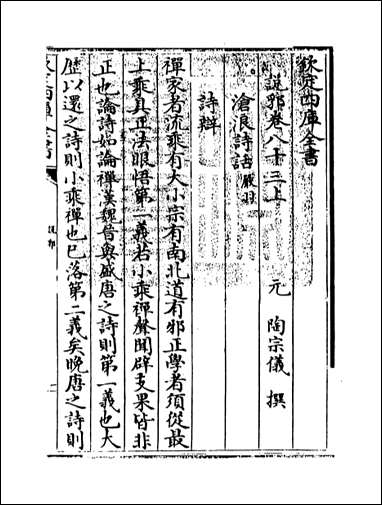 欽定四庫全書
說郛卷八十三上
元　陶宗儀　撰
滄浪詩話嚴羽
詩辯
禪家者流乘有大小宗有南北道有邪正學者須從最
上乘具正法眼悟第一義若小乘禪聲聞辟支果皆非
正也論詩如論禪漢魏晉與盛唐之詩則第一義也大
歷以還之詩則小乘禪也已落第二義矣晚唐之詩則
欽定四庫全書
說郛